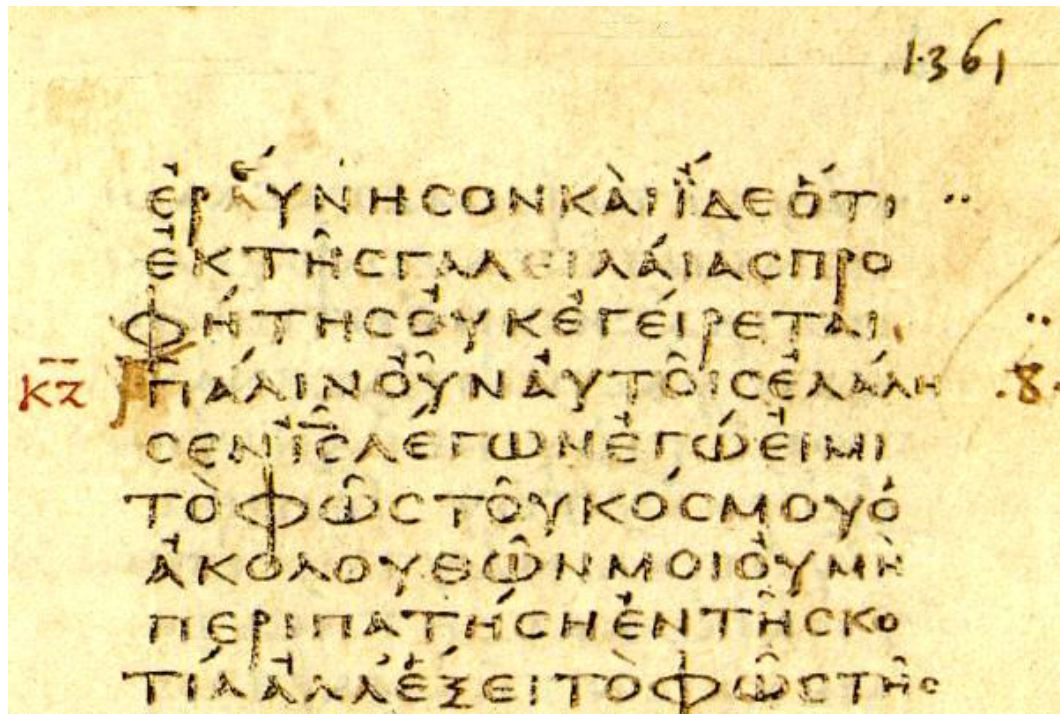 1361
ΕΡΑΥΝΗϹΟΝΚΑΙΪΔΕΟΤΙ ··
ΕΚΤΗϹΓΑΛΕΙΛΑΙΑϹΠΡΟ
ΦΗΤΗϹΟΥΚΕΓΕΙΡΕΤΑΙ ··
ΚΖ ΠΑΛΙΝΟΥΝΑΥΤΟΙϹΕΛΑΛΗ .8.
ϹΕΝΙ̅Ϲ̅ΛΕΓΩΝΕΓΩΕΙΜΙ
ΤΟΦΩϹΤΟΥΚΟϹΜΟΥΟ
ΑΚΟΛΟΥΘΩΝΜΟΙΟΥΜΗ
ΠΕΡΙΠΑΤΗϹΗΕΝΤΗϹΚΟ
ΤΙΑΑΛΛΕΞΕΙΤΟΦΩϹΤΗϹ